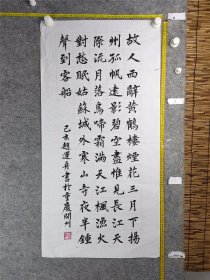 故人西辭黃鶴樓煙花三月下揚
州孤帆遠影碧空盡惟見長江天
際流月落烏啼霜滿天江楓漁火
對愁眠姑蘇城外寒山寺夜半鍾
聲到客船
趙運舟書於重慶開州